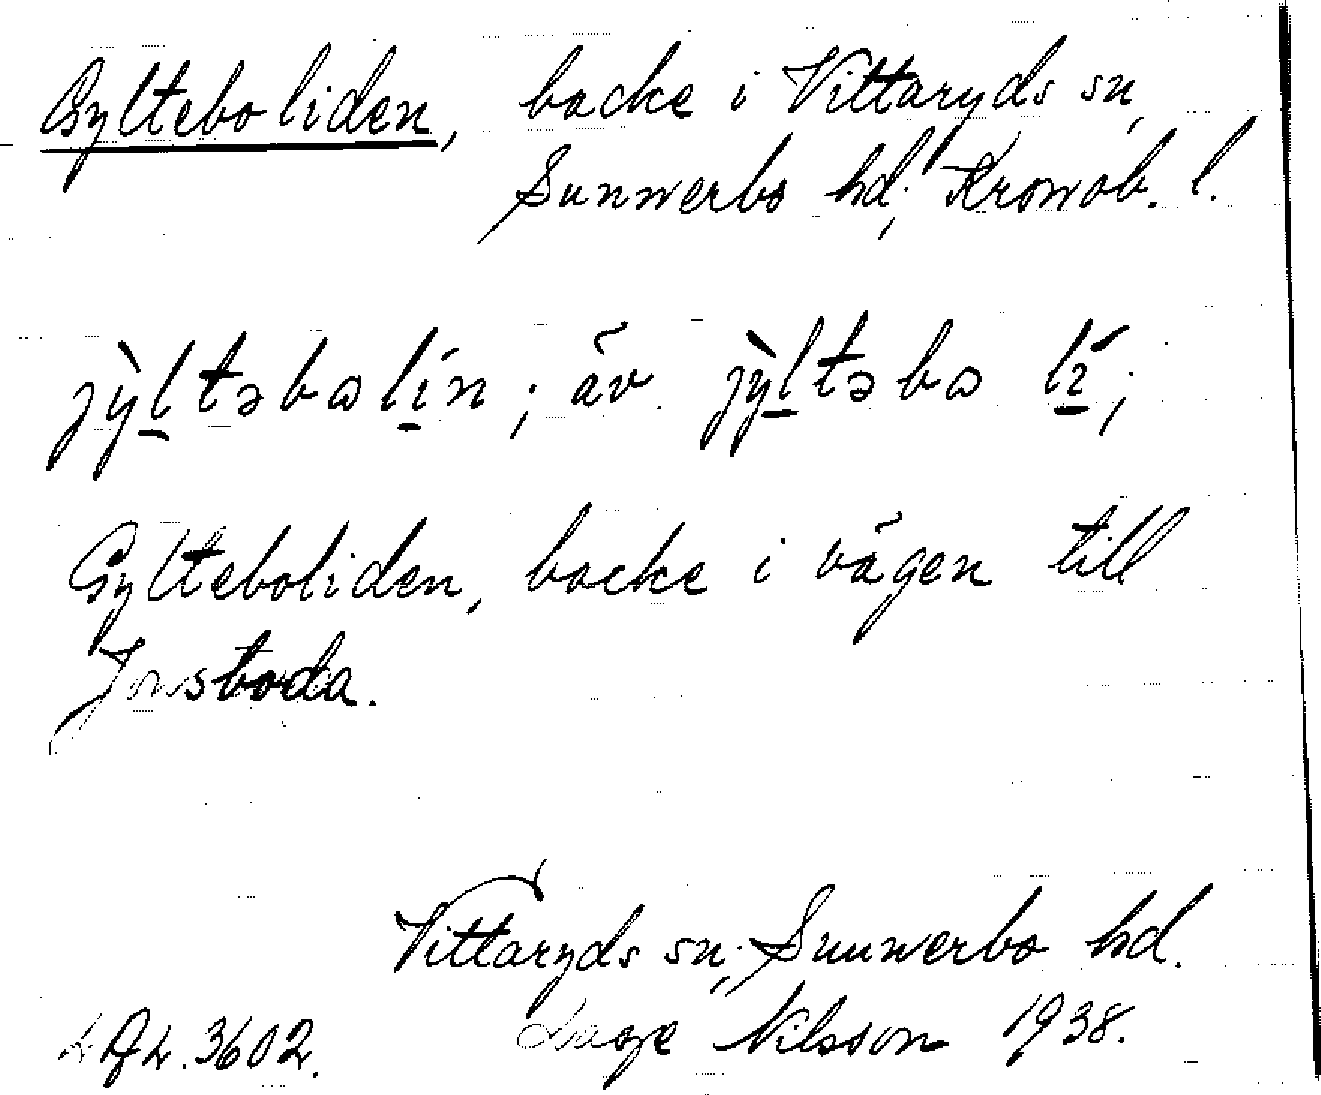 Gylteboliden, backe i Vittaryds sn,
Sunnerbo hd, Kronob. l.
jỳltəbωlín; äv. jỳltəbω lí;
Gylteboliden, backe i vägen till
Jonsboda.
Vittaryds sn, Sunnerbo hd.
Nilsson 1938.
3602.